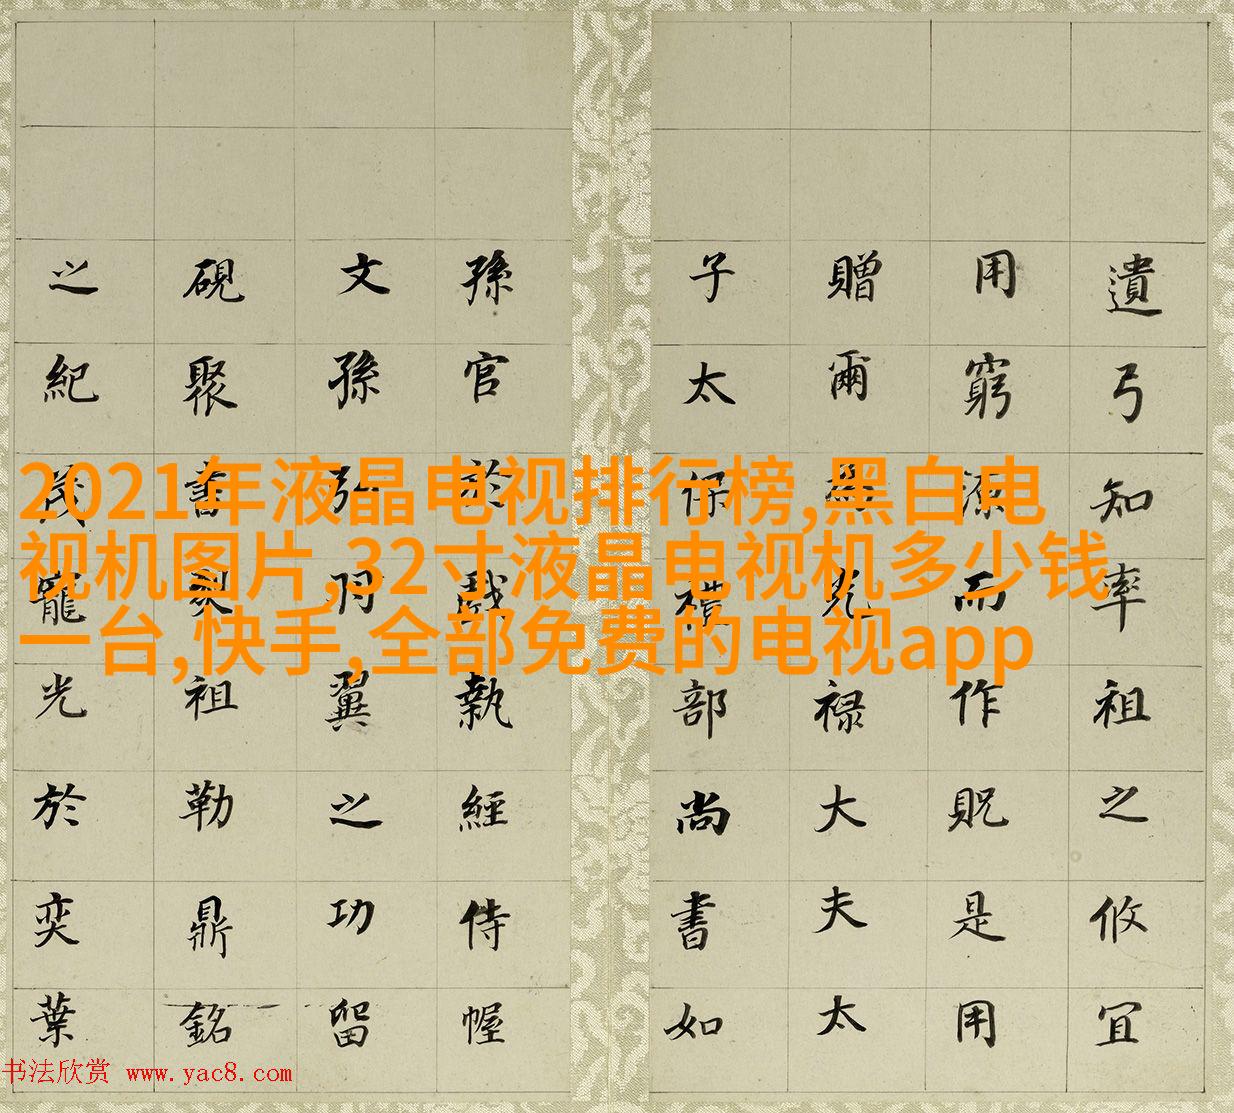 遺弓知率祖之攸宜
用窮源而作貺是用
贈爾為光禄大夫太
子太保禮部尚書如
孫官於戲執經侍幄
文孫弘翼之功留
硯聚書祖勒鼎銘
之紀茂寵光於奕葉
2021年液晶电视排行榜,黑白电
视机图片,32寸液晶电视机多少钱
一台,快手,全部免费的电视app
书法欣赏 www.yac8.com